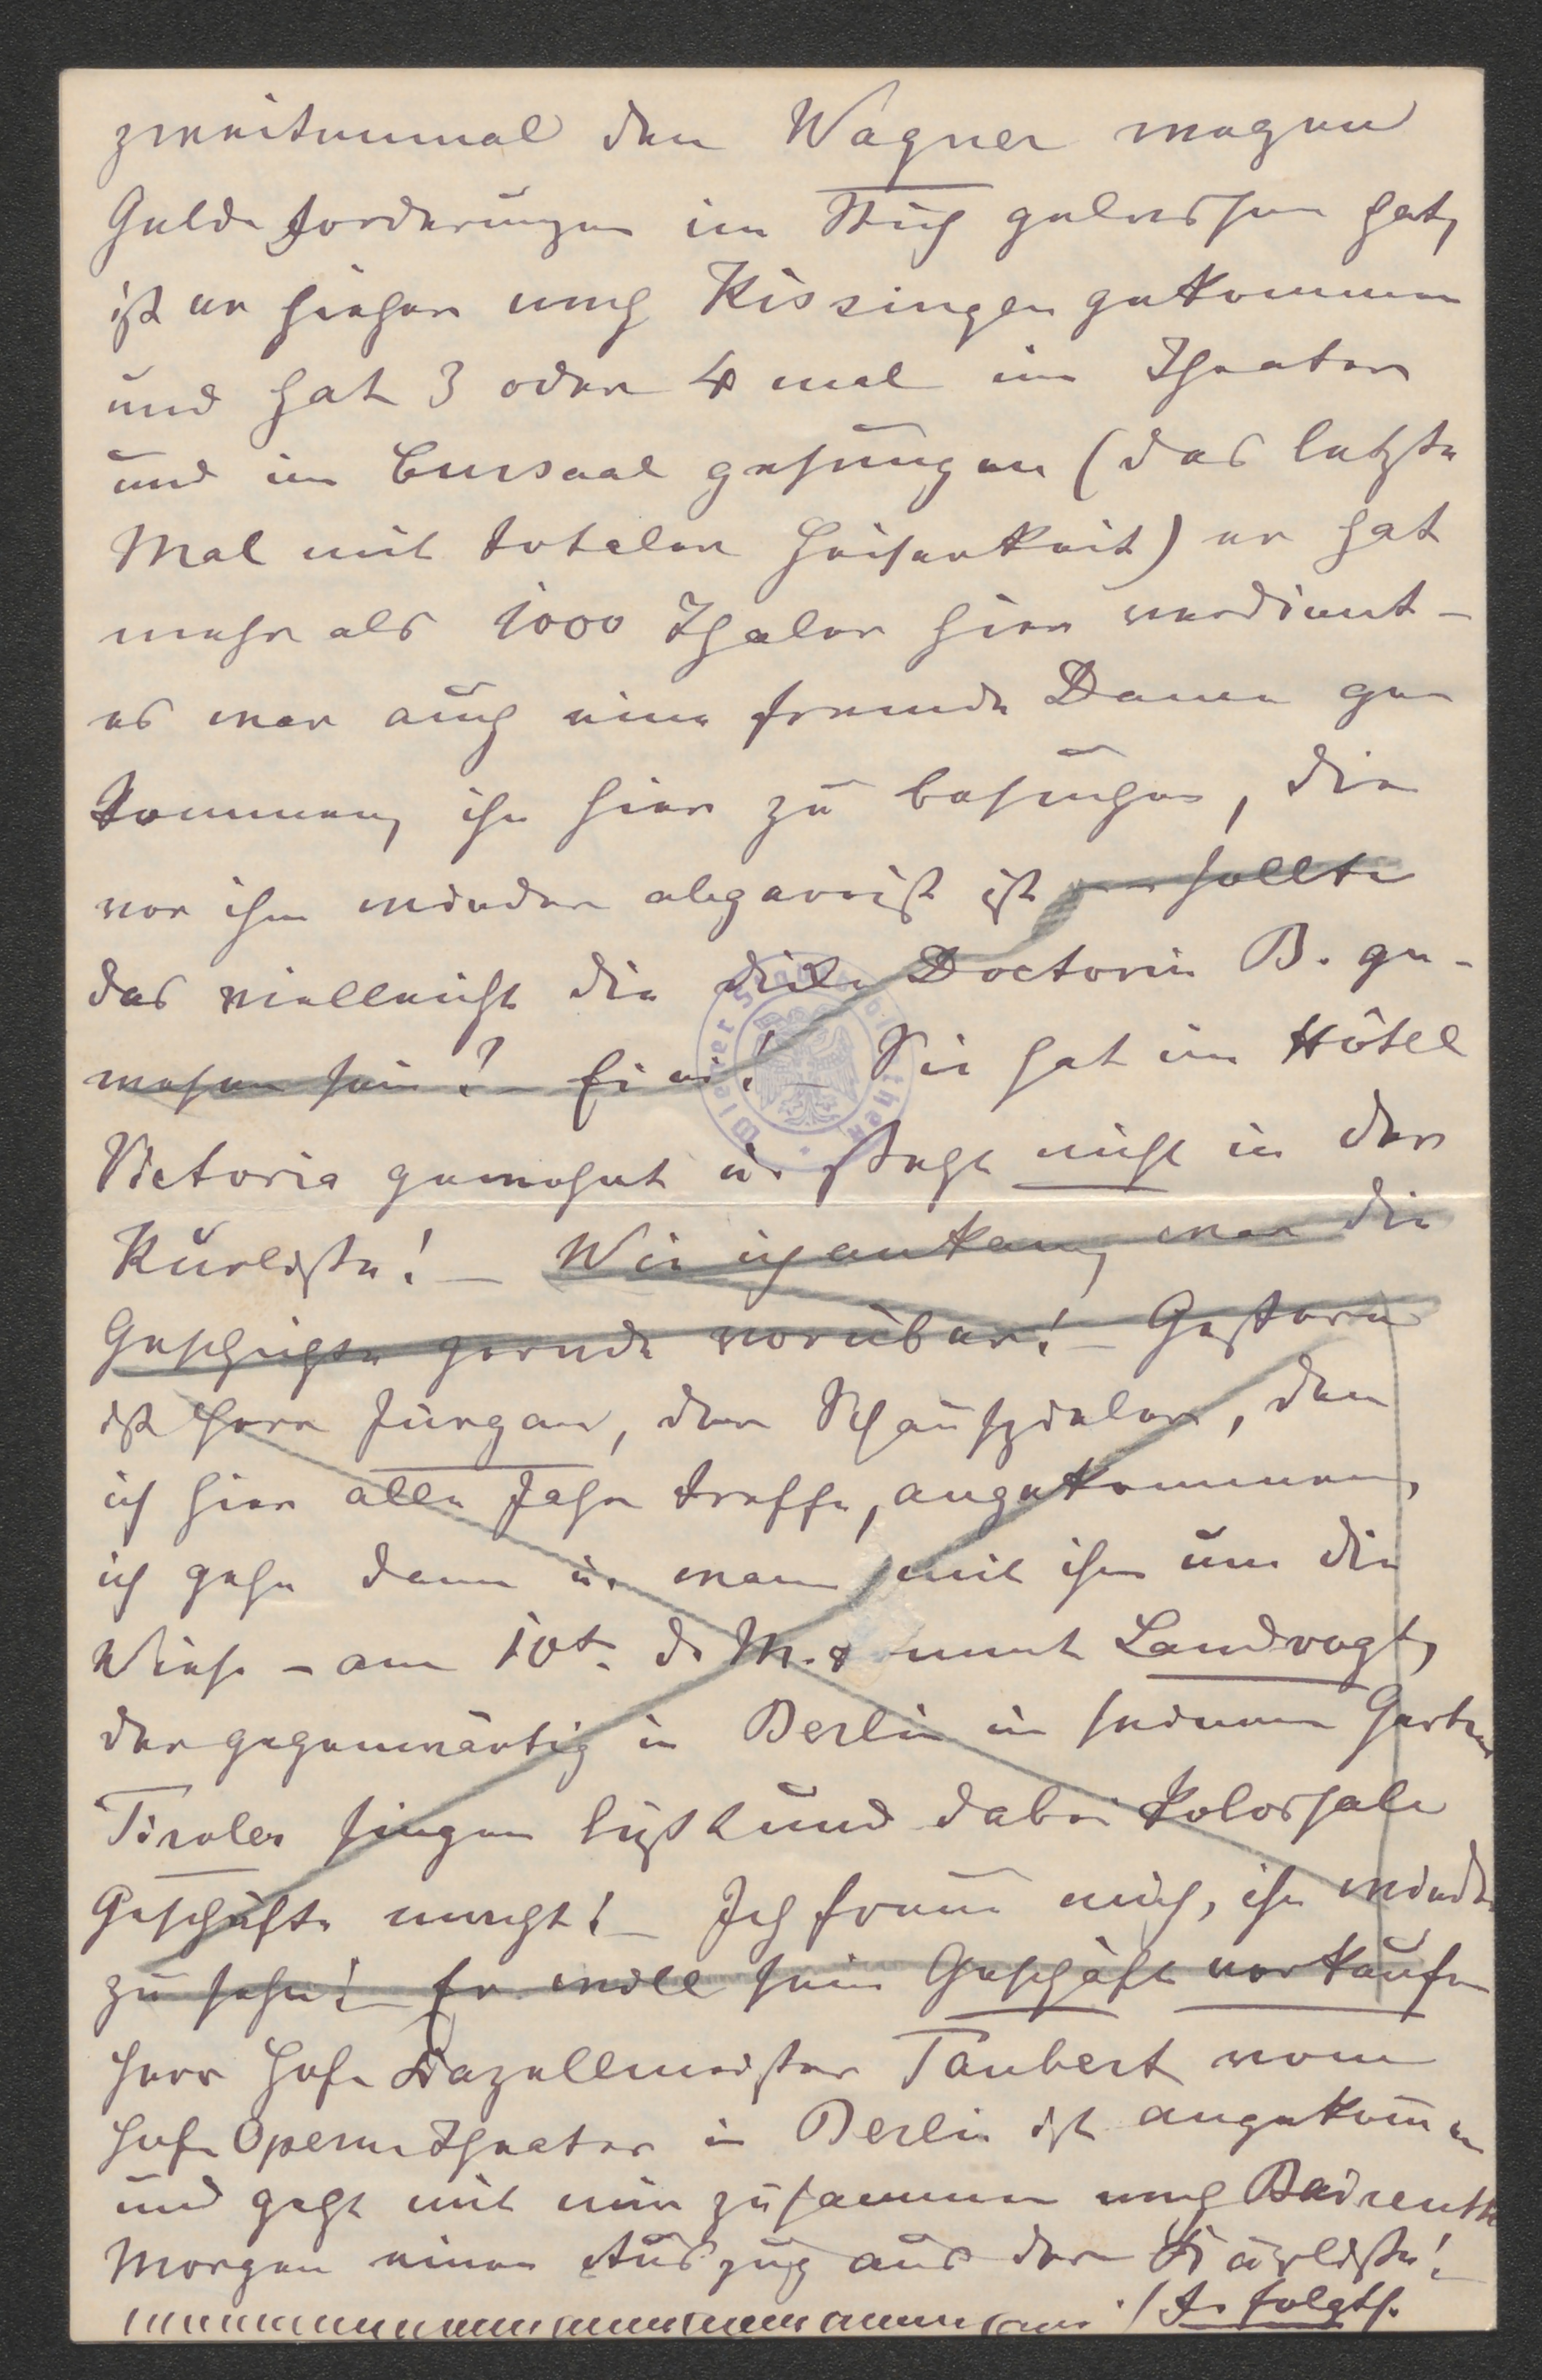 zweitenmal den Wagner wegen
Geldforderungen im Stich gelassen hat,
ist er hieher nach Kissingen gekommen
und hat 3 oder 4 mal im Theater
und im Cursaal gesungen (das letzte
Mal mit totaler Heiserkeit) er hat
mehr als 1000 Thaler hier verdient –
es war auch eine fremde Dame ge
kommen, ihn hier zu besuchen, die
vor ihm wieder abgereist ist – sollte
das vielleicht die dicke Doctorin B. ge-
wesen sein? – Ei ei! – Sie hat im Hôtel
Victoria gewohnt u. steht nicht in der
Kurliste! – Wie ich ankam, war die
Geschichte gerade vorüber! – Gestern
ist Herr Jürgan, der Schauspieler, den
ich hier alle Jahr treffe, angekommen,
ich gehe dann u. wann mit ihm um die
Wiese – am 10t. d. M. kommt Landvogt,
der gegenwärtig in Berlin in seinem Garten
Tiroler singen läßt und dabei kolossale
Geschäfte macht! – Ich freue mich, ihn wieder
zu sehn! – Er will sein Geschäft verkaufen
Herr Hof-Kapellmeister Taubert vom
Hof-Opern-Theater in Berlin ist angekommen
und geht mit mir zusammen nach Baireuth
Morgen einen Auszug aus der Kurliste! –
/ F. folgt/.
Wiener Stadtbibliothek